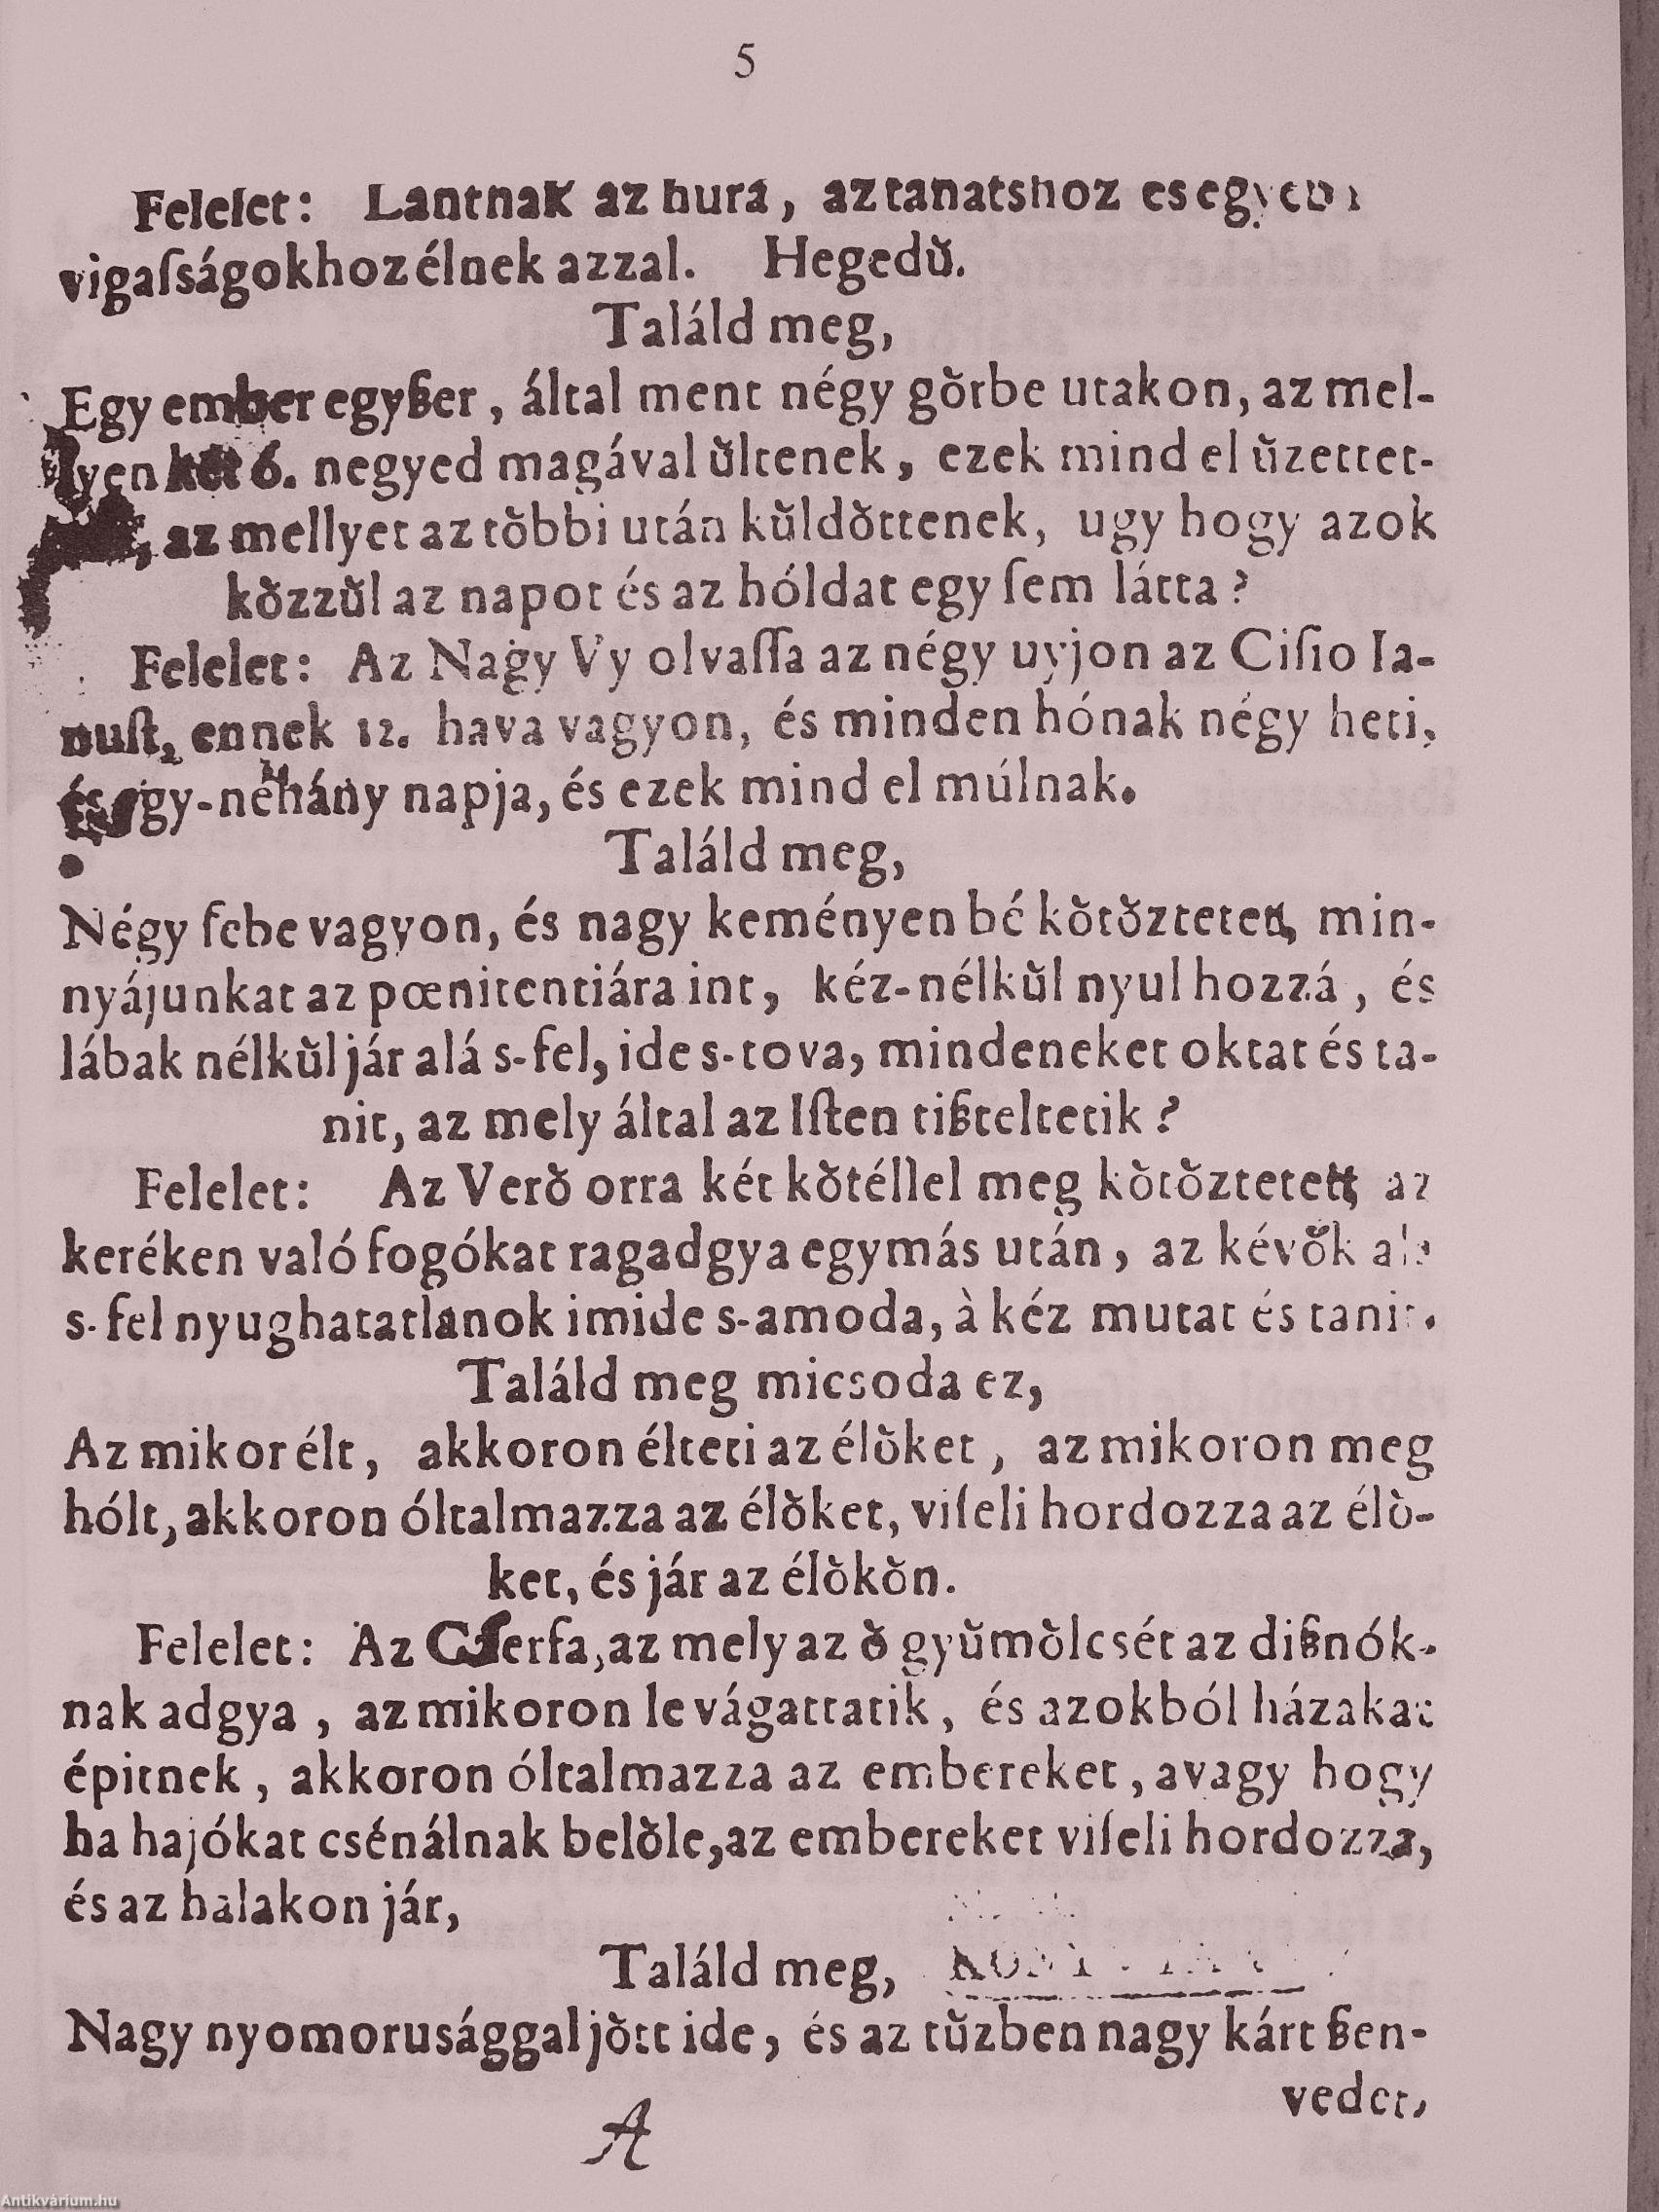 5
Felelet: Lantnak az hura, az tanatshoz es egyeb
vigaſságokhoz élnek azzal. Hegedŭ.
Találd meg,
Egy ember egyßer, által ment négy gŏrbe utakon, az mel-
lyen két 6. negyed magával ŭltenek, ezek mind el ŭzettet-
az mellyet az tŏbbi után kŭldŏttenek, ugy hogy azok
kŏzzŭl az napot és az hóldat egy ſem látta?
Felelet: Az Nagy Vy olvaſſa az négy uyjon az Ciſio Ia-
nuſt, ennek 12. hava vagyon, és minden hónak négy heti,
és egy-néhány napja, és ezek mind el múlnak.
Találd meg,
Négy ſebe vagyon, és nagy keményen bé kŏtŏztetett, min-
nyájunkat az pœnitentiára int, kéz-nélkŭl nyul hozzá, és
lábak nélkŭl jár alá s-fel, ide s-tova, mindeneket oktat és ta-
nit, az mely által az Iſten tißteltetik?
Felelet: Az Verŏ orra két kŏtéllel meg kŏtŏztetett, az
keréken való fogókat ragadgya egymás után, az kévŏk ala
s-fel nyughatatlanok imide s-amoda, à kéz mutat és tanit.
Találd meg micsoda ez,
Az mikor élt, akkoron élteti az élŏket, az mikoron meg
hólt, akkoron óltalmazza az élŏket, viſeli hordozza az élŏ-
ket, és jár az élŏkŏn.
Felelet: Az Cſerfa, az mely az ŏ gyŭmŏlcsét az dißnók-
nak adgya, az mikoron le vágattatik, és azokból házakat
épitnek, akkoron óltalmazza az embereket, avagy hogy
ha hajókat csénálnak belŏle, az embereket viſeli hordozza,
és az halakon jár,
Találd meg,
Nagy nyomorusággal jŏtt ide, és az tŭzben nagy kárt ßen-
vedet,
A
Antikvárium.hu